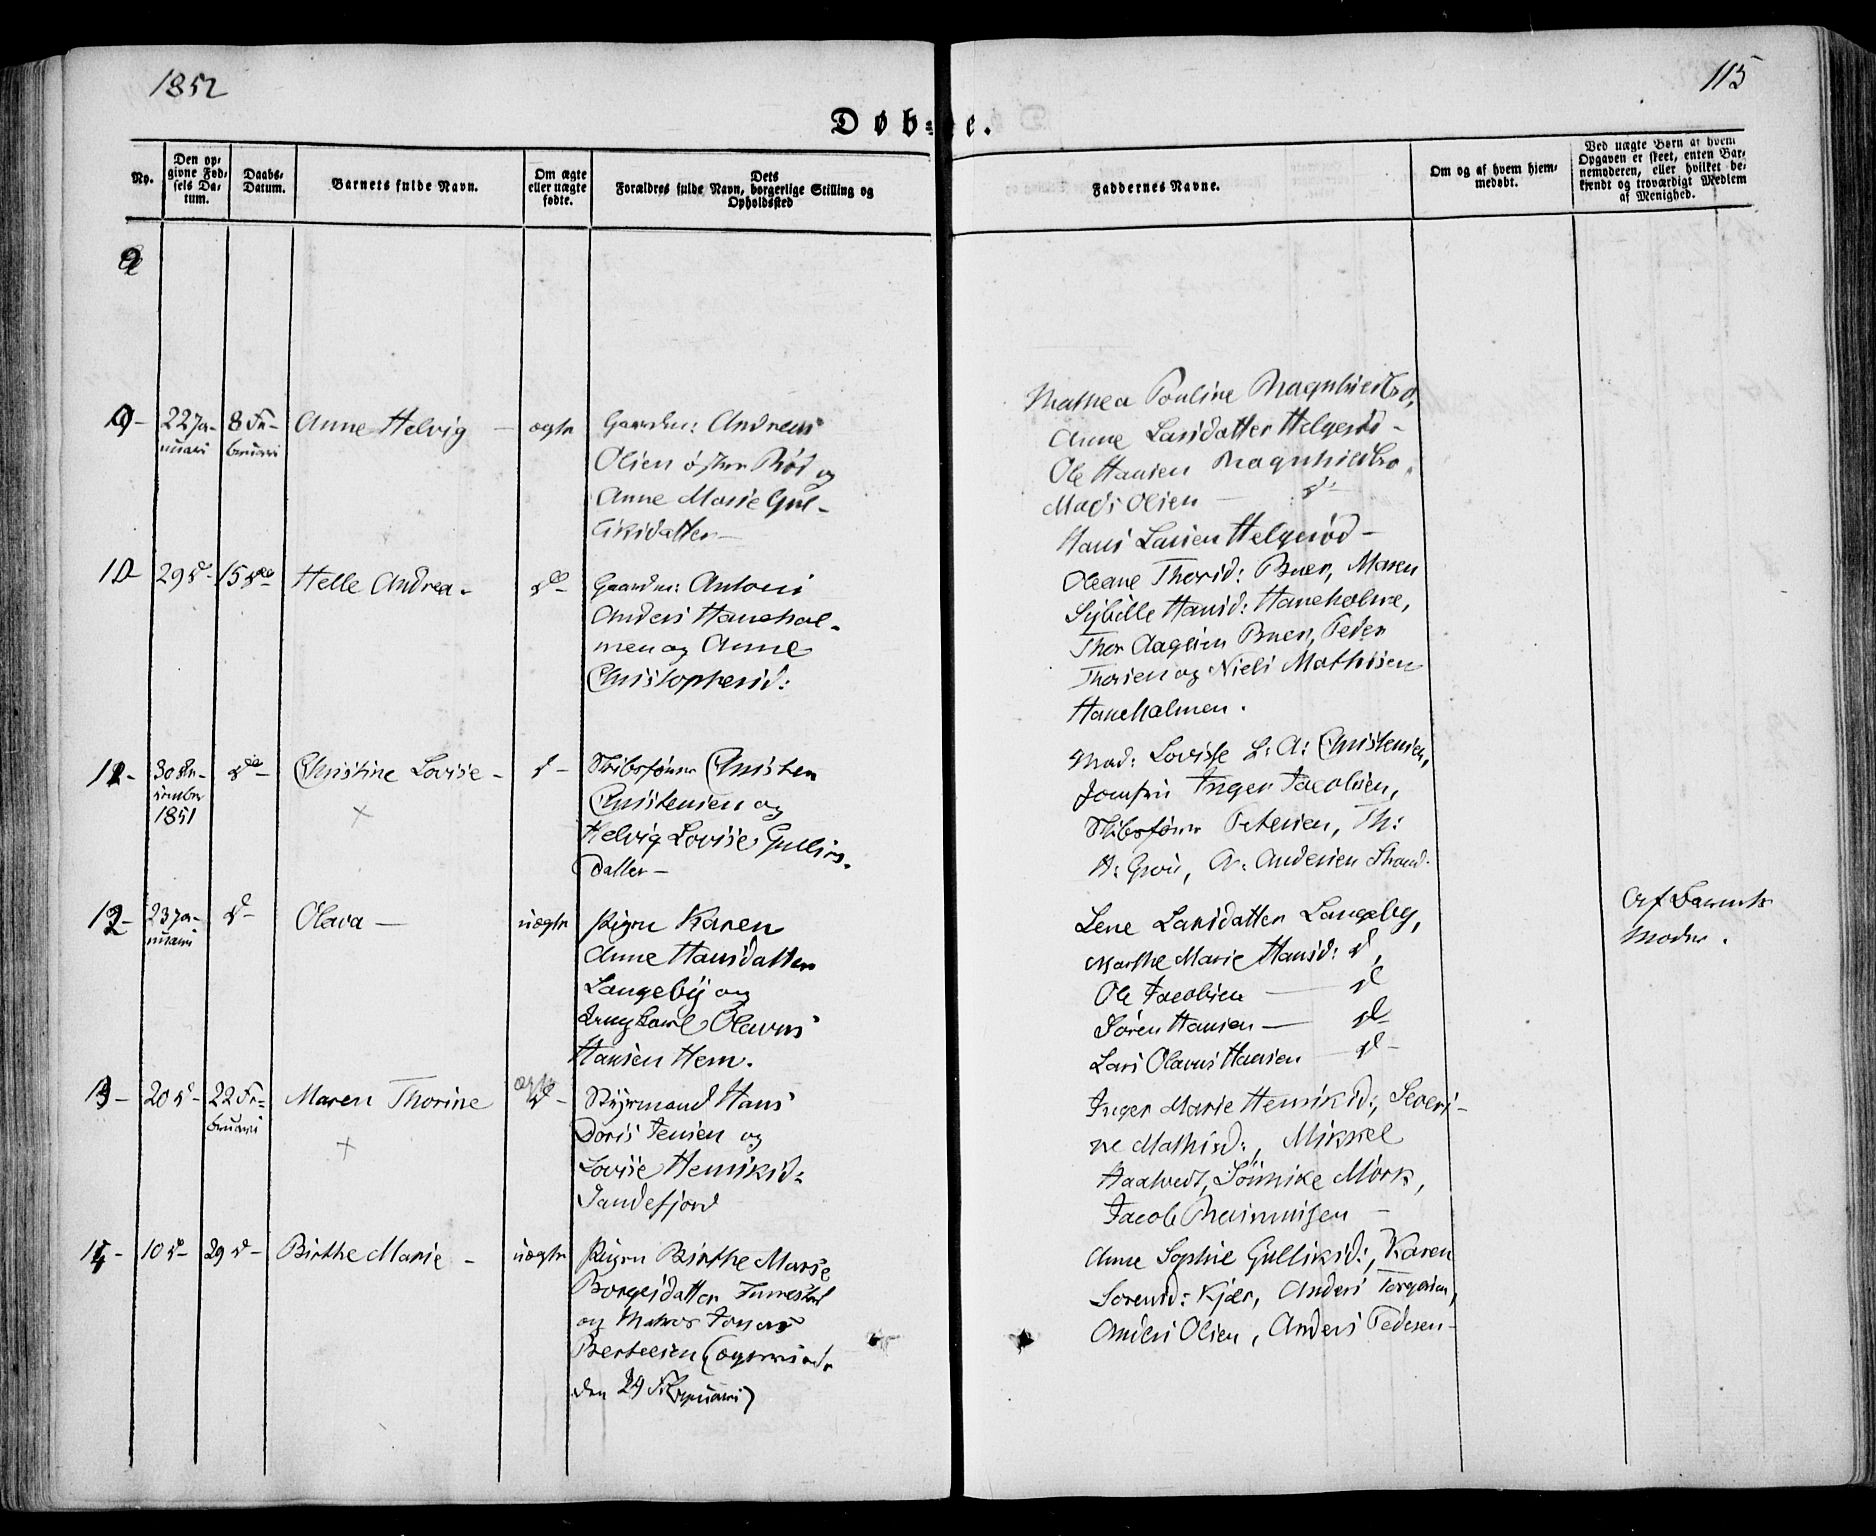 1852
115
Døb= e.
No.
Den op-
givne Fød-
sels Da-
tum.
Daabs-
Datum.
Barnets fulde Navn.
Om ægte
eller uægte
fødte.
Dets
Forældres fulde Navn, borgerlige Stilling og
Opholdssted
Faddernes Navne.
Om og af hvem hjem-
medøbt.
Ved uægte Børn af hvem
Opgaven er skeet, enten Bar-
nemoderen, eller hvilket be-
kjendt og troværdigt Medlem
af Menighed.
9
9- 22 Ja-
nuari
8 Fe-
bruari
Anne Helvig - ægte
Gaardm: Andreas
Olsen østre Rød og
Anne Marie Gul-
liksdatter-
Mathea Pouline Magnhildbo,
Anne Larsdatter Helgerød-
Ole Hansen Magnhildbo,
Mads Olsen - d-
Hans Larsen Helgerød-
10 29 d- 15 de Helle Andrea- do-
Gaardm: Antoni
Anders Hanehol-
men og Anne
Christophersd:
Oleane Thorsd: Buer, Maren
Sybille Hansd: Haneholme,
Thor Aagesen Buer, Peder
Thorsen og Niels Mathisen
Haneholmen.
11- 30 De-
cember
1851
de- Christine Lovise- d-
+
Skibsfører Christen
Christensen og
Helvig Lovise Gullics-
datter-
Mad: Lovise L: A: Christensen,
Jomfru Inger Jacobsen,
Skibsfører Petersen, Th:
A: , A: Andersen
12- 23 Ja-
nuari
d- Olava - uægte
Pigen Karen
Anne Hansdatter
Langeby og
Ungkarl Olavus
Hansen Hem.
Lene Larsdatter Langeby,
Marthe Marie Hansd: d,
Ole Jacobsen - d
Søren Hansen - d-
Lars Olavus Hansen - d-
Af Barnets
Moder.
13- 20 d- 22 Fe-
bruari
Maren Thorine
+
ægte
d-
Styrmand Hans
Doris Jensen og
Lovise Henriksd:
Sandefjord
Inger Marie Henriksd:, Severi-
ne Mathisd:, Mikkel
Haatvedt, Sönnike Mørk,
Jacob -
14- 10 d- 29 d- Birthe Marie - uægte
Pigen Birthe Marie
Borgesdatter
og Matros Jonas
Bertelsen (
den 29 Februari)
Anne Sophie Gulliksd:, Karen
Sorensd: Kjær, Anders Torgersen,
Anders Olsen, Anders Pedersen-